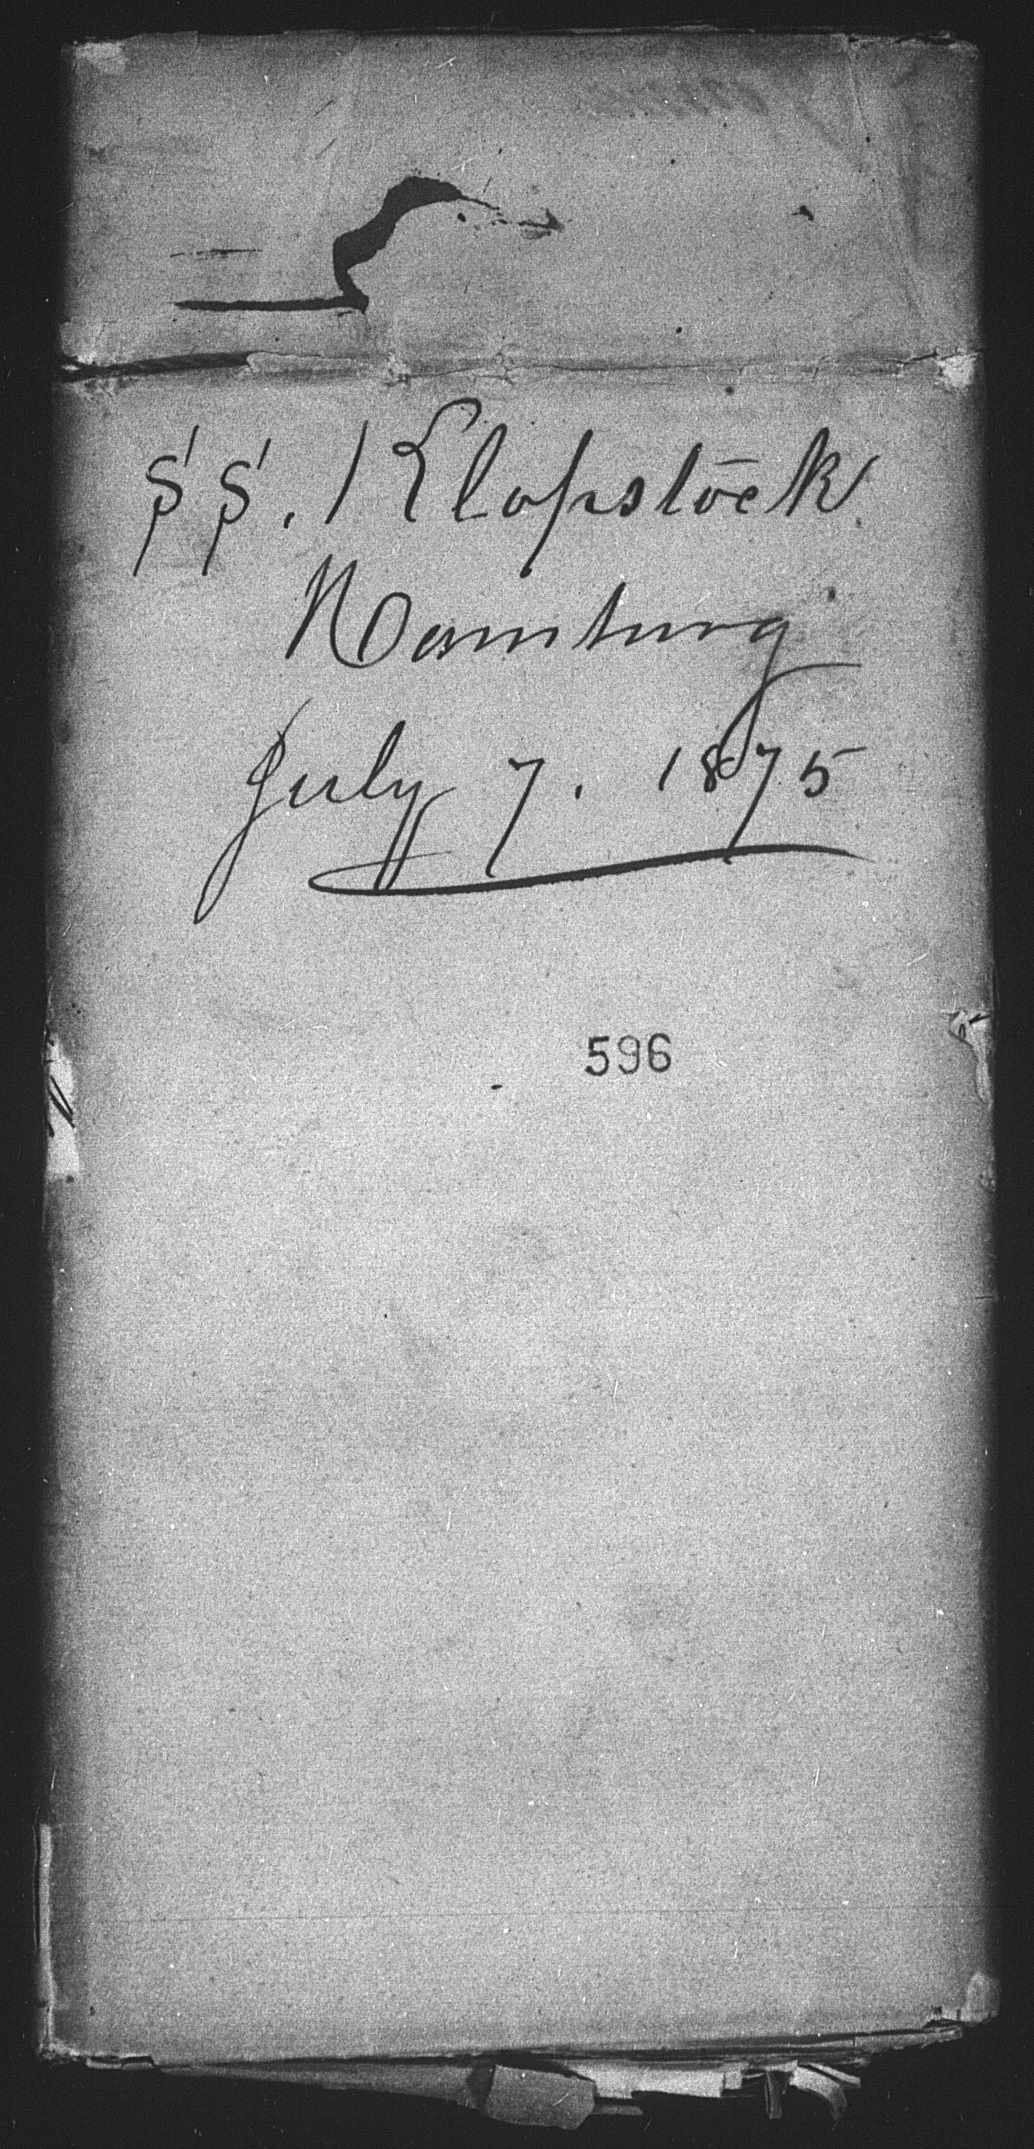 SS. Klopstock
Hamburg
July 7. 1875
596